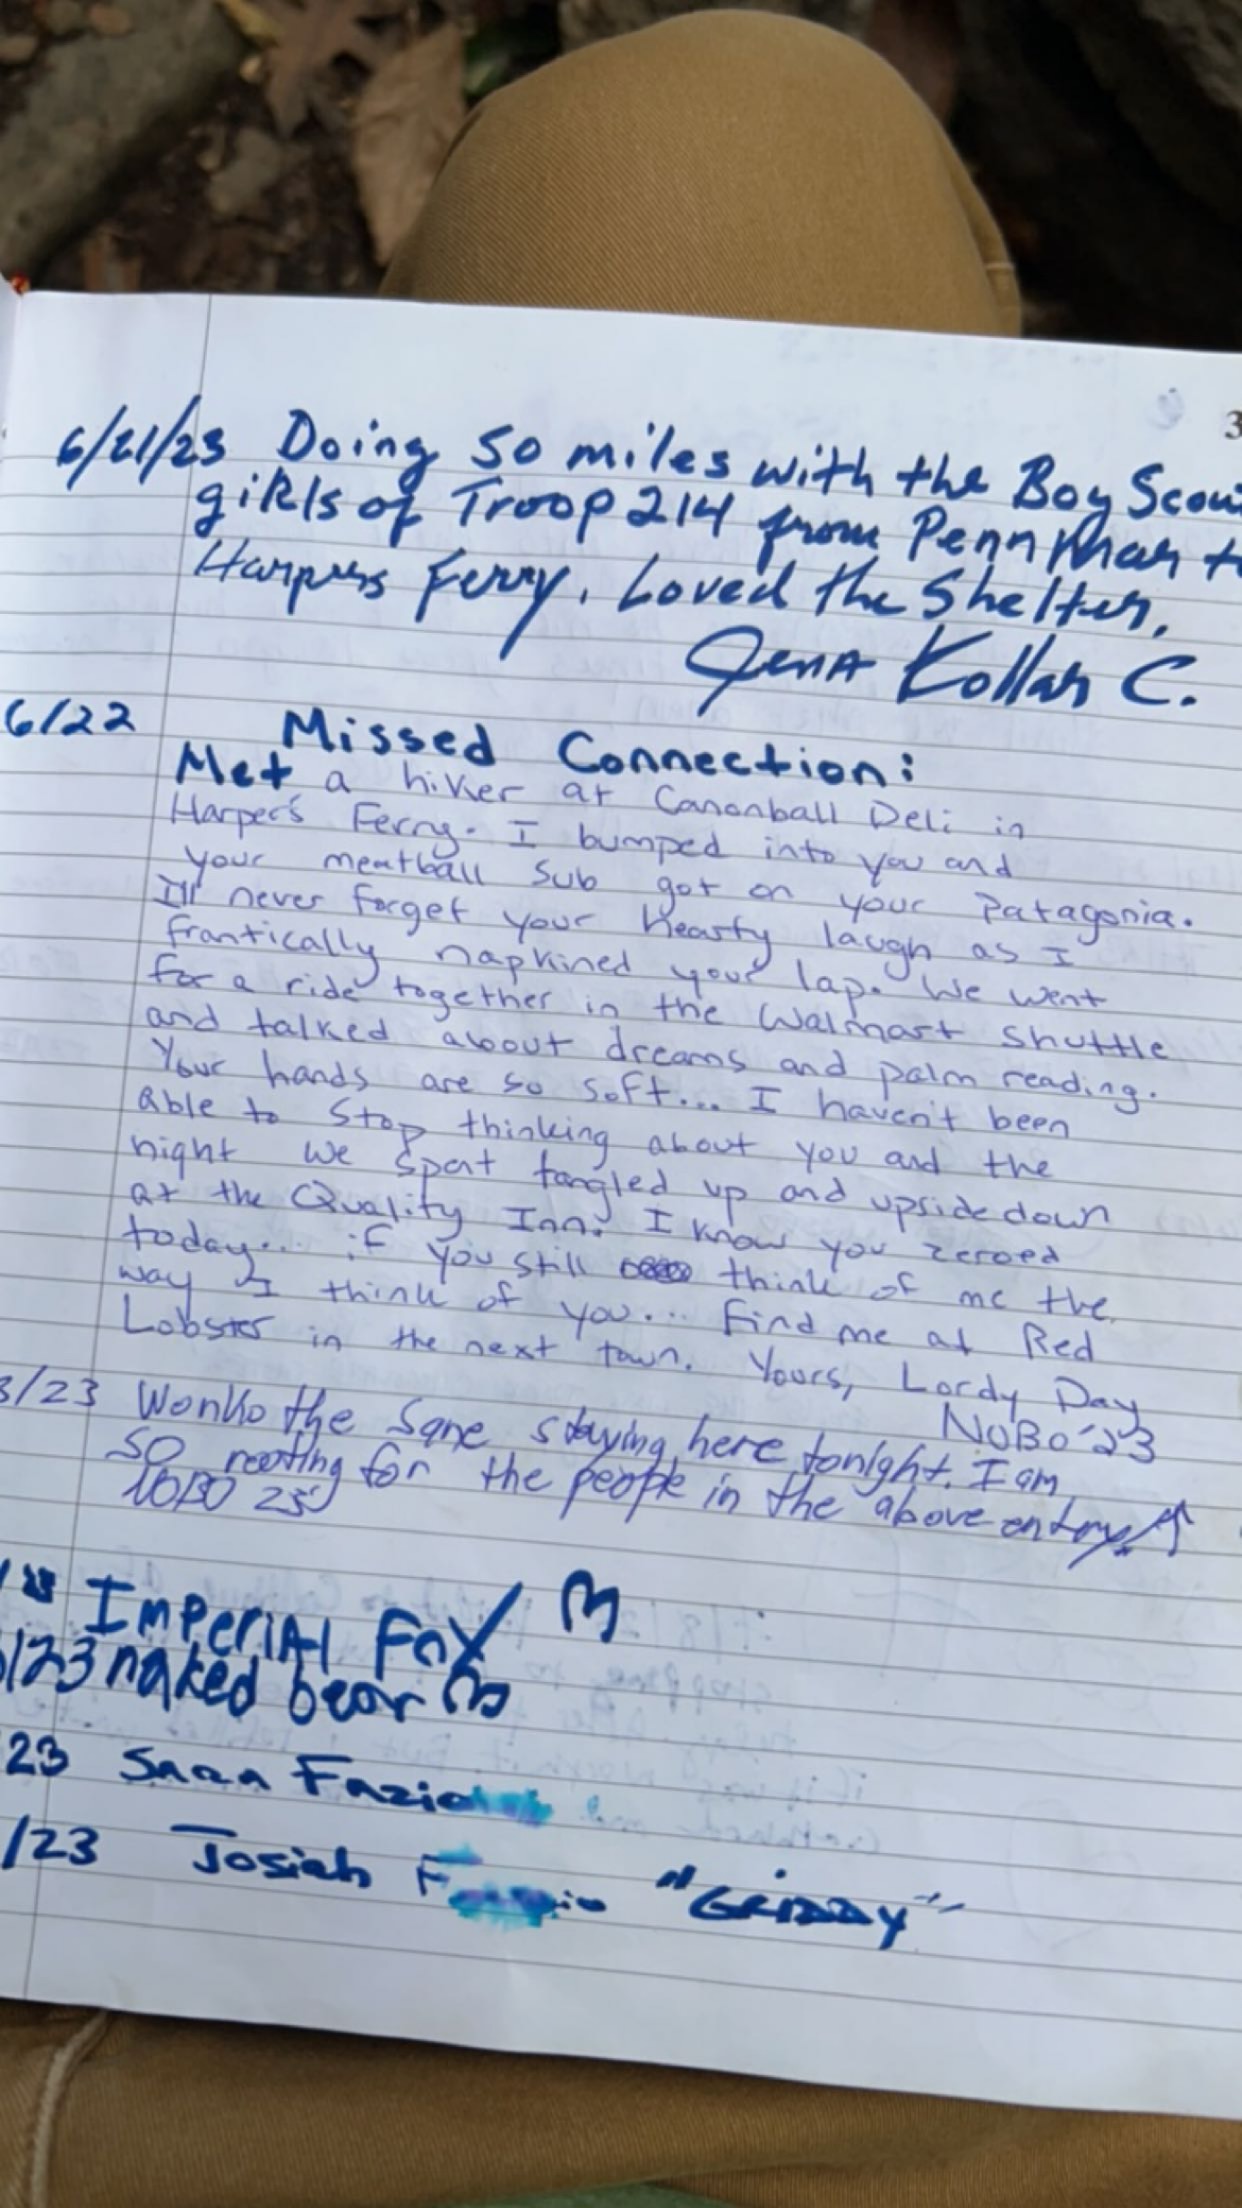 3
6/21/23 Doing 50 miles with the Boy Scou
girls of Troop 214 from Penn Mar t
Harpers Ferry. Loved the Shelter.
Jena Kollar C.
6/22 Missed Connection:
Met a hiker at Canonball Deli in
Harper's Ferry. I bumped into you and
your meatball sub got on your Patagonia.
I'll never forget your hearty laugh as I
frantically napkined your lap. We went
for a ride together in the Walmart Shuttle
and talked about dreams and palm reading.
Your hands are so soft... I haven't been
able to stop thinking about you and the
night we spent tangled up and upside down
at the Quality Inn. I know you zeroed
today... if you still think of me the
way I think of you... Find me at Red
Lobster in the next town. Yours, Lordy Day
NOBO '23
3/23 Wonko the Sane staying here tonight. I am
so rooting for the people in the above entry!
NOBO 23
Imperial Fox
/23 naked bear
23 Sara Fazio
/23 Josiah "Grizzy"